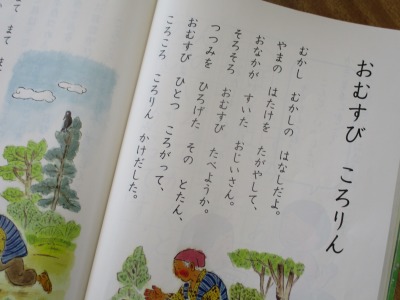 おむすび ころりん
むかし むかしの はなしだよ。
やまの はたけを たがやして、
おなかが すいた おじいさん。
そろそろ おむすび たべようか。
つつみを ひろげた その とたん、
おむすび ひとつ ころがって、
ころころ ころりん かけだした。
まて まて